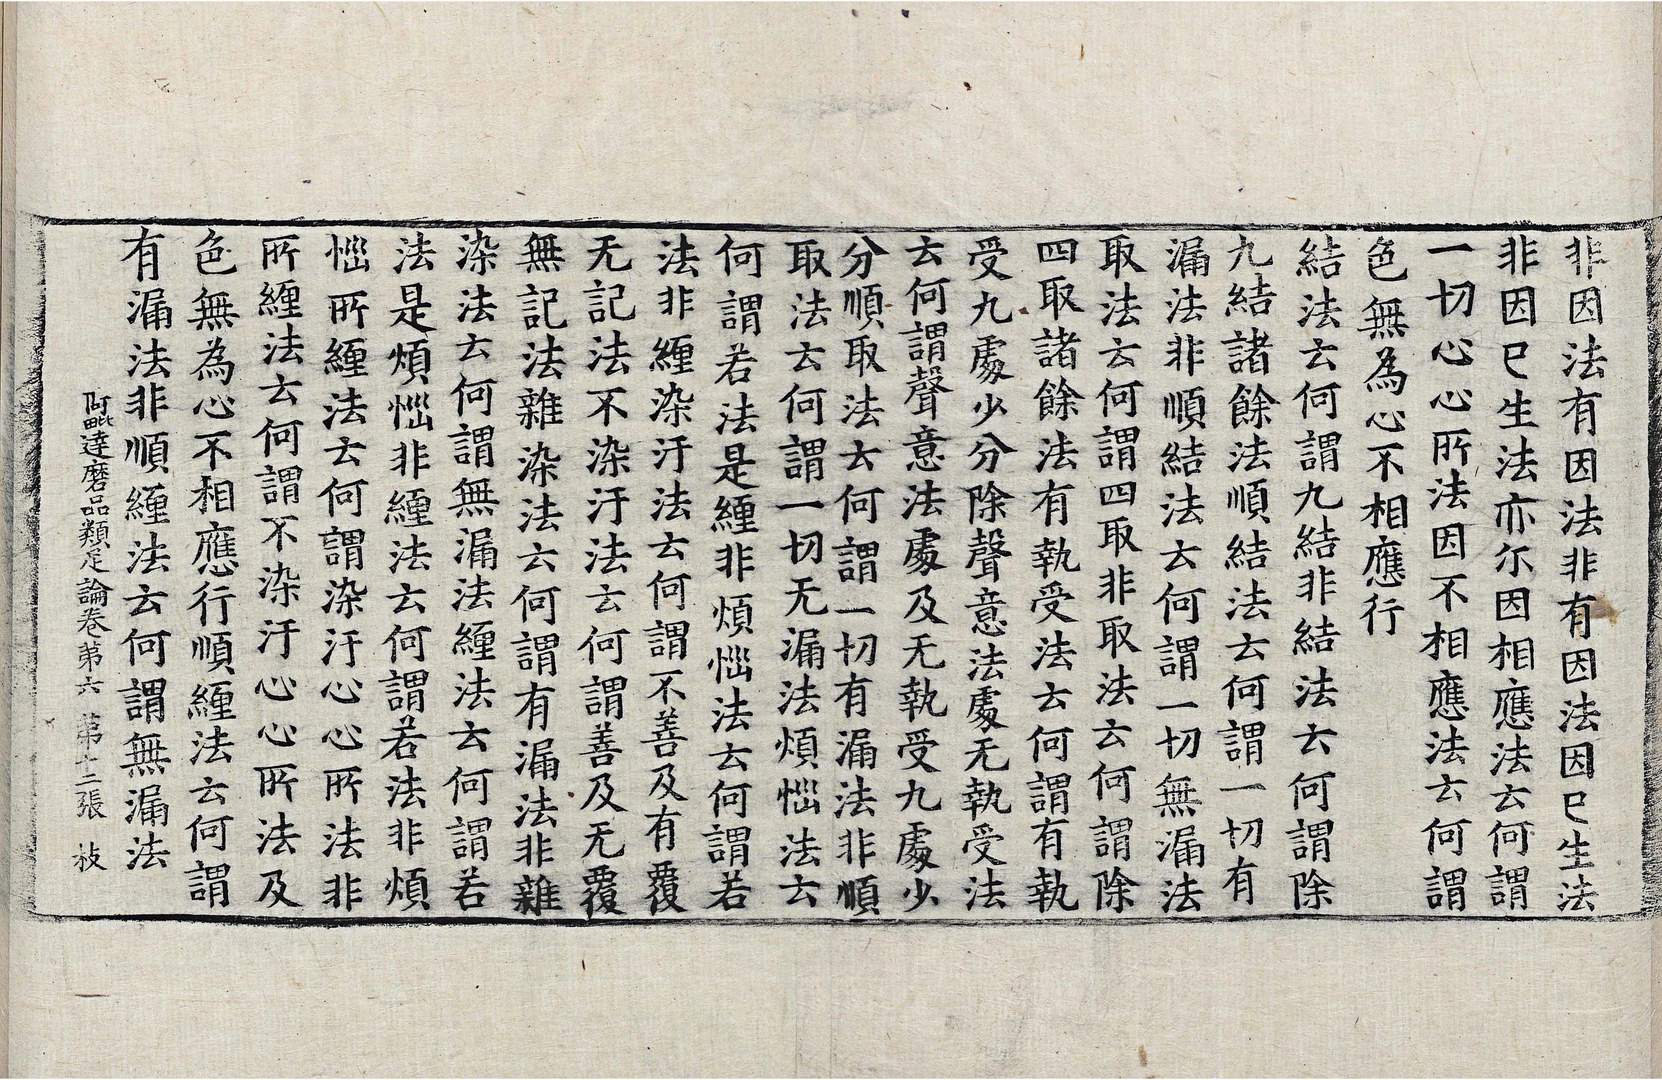 非因法有因法非有因法因已生法
非因已生法亦尔因相應法云何謂
一切心心所法因不相應法云何謂
色無為心不相應行
結法云何謂九結非結法云何謂除
九結諸餘法順結法云何謂一切有
漏法非順結法云何謂一切無漏法
取法云何謂四取非取法云何謂除
四取諸餘法有執受法云何謂有執
受九處少分除聲意法處无執受法
云何謂聲意法處及无執受九處少
分順取法云何謂一切有漏法非順
取法云何謂一切无漏法煩惱法云
何謂若法是纏非煩惱法云何謂若
法非纏染汙法云何謂不善及有覆
无記法不染汙法云何謂善及无覆
無記法雜染法云何謂有漏法非雜
染法云何謂無漏法纏法云何謂若
法是煩惱非纏法云何謂若法非煩
惱所纏法云何謂染汙心心所法非
所纏法云何謂不染汙心心所法及
色無為心不相應行順纏法云何謂
有漏法非順纏法云何謂無漏法
阿毗達磨品類足論卷第六 第十二張 枝